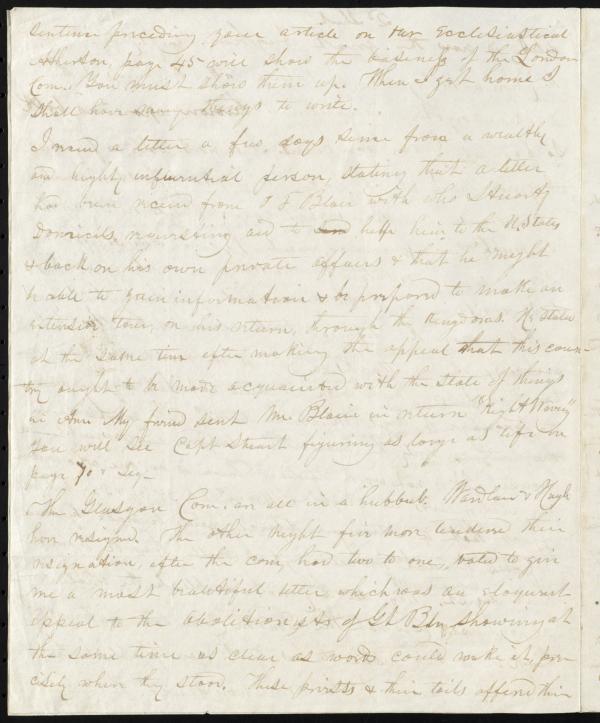 sentence preceding your article on our Ecclesiastical
page 45 will show the baseness of the London
Com. You must show them up. When I get home I
shall have some things to write.
I received a letter a few days since from a wealthy
and highly influential person, stating that a letter
had been received from J F Blair with who Stuart
Domicils, requesting aid to help him to the U. States
& back on his own private affairs & that he might
be able to gain information & be prepared to make an
extensive tour, on his return, through the Kingdoms. He states
at the same time after making the appeal that this coun-
try ought to be made acquainted with the state of things
in Am. My friend sent Mr. Blair in return "Right & Wrong"
You will see Capt Stuart figuring as large as life on
page 70 &
The Glasgow Com. are all in a hubbub. Wardlaw & Hugh
have resigned. The other night five more tendered their
resignation, after the com, had two to one, voted to give
me a most beautiful letter which was an eloquent
appeal to the abolitionists of Gt Bin showing at
the same time as clear as words could make it, pre-
cisely where they stood. These priests & their tails affend this